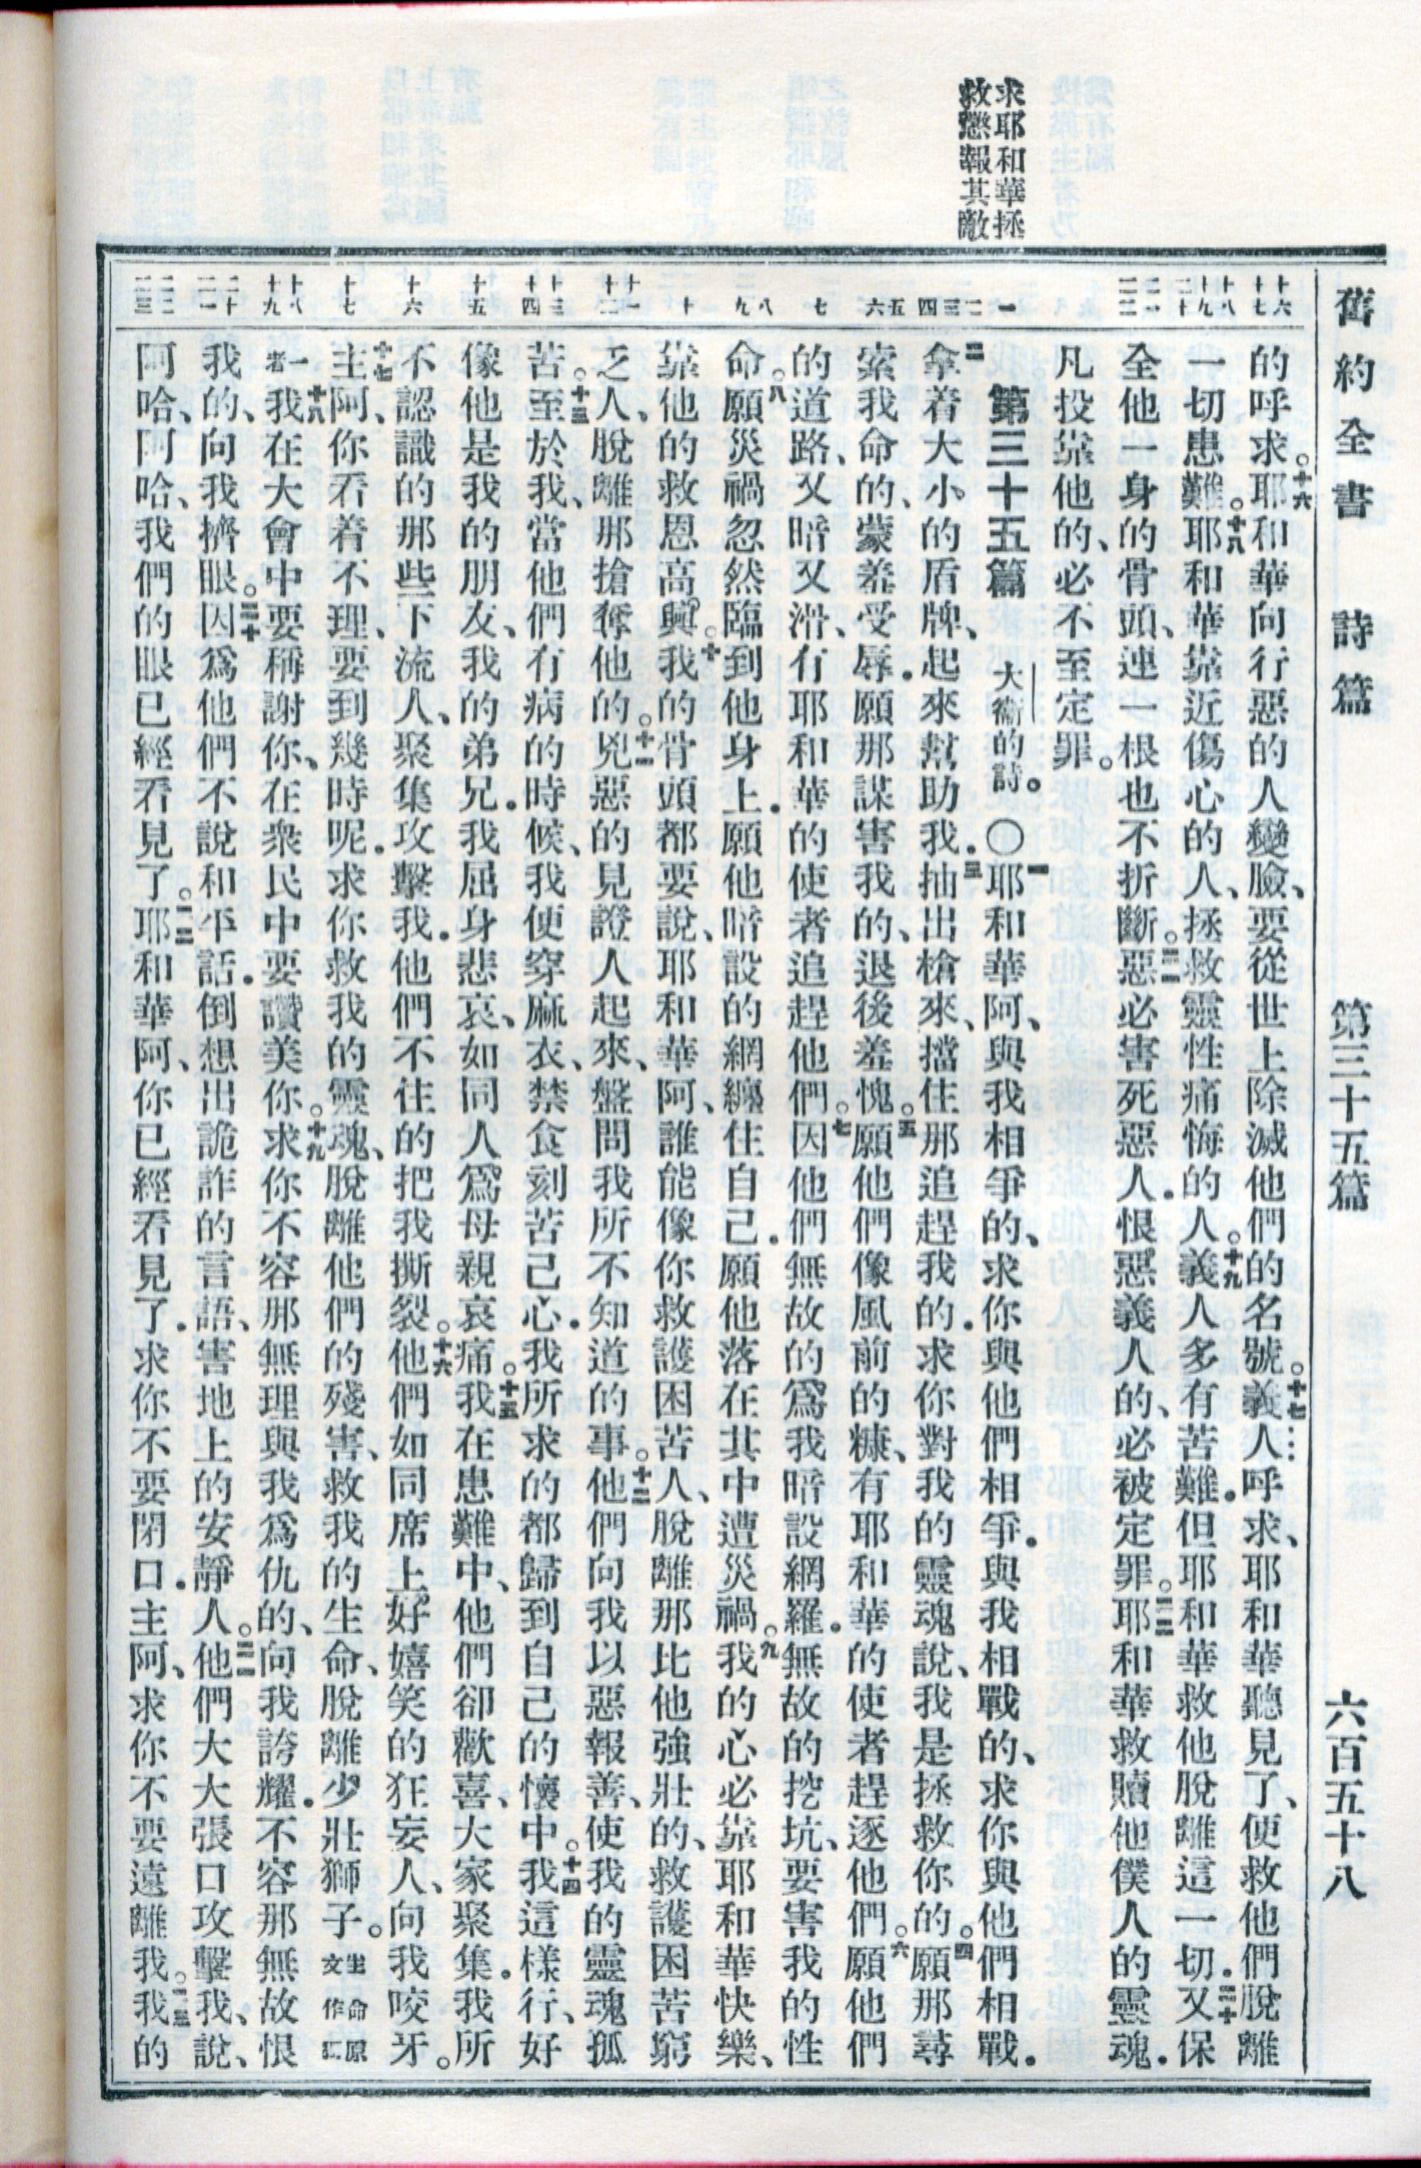 舊約全書　詩篇　第三十五篇　六百五十八
求耶和華拯
救懲報其敵
十六
十七
十八
十九
二十
二一
二二
一
二
三
四
五
六
七
八
九
十
十一
十二
十三
十四
十五
十六
十七
十八
十九
二十
二一
二二
二三
的呼求。十六耶和華向行惡的人變臉、要從世上除滅他們的名號。十七…義人呼求、耶和華聽見了、便救他們脫離
一切患難。十八耶和華靠近傷心的人、拯救靈性痛悔的人。十九義人多有苦難．但耶和華救他脫離這一切．二十又保
全他一身的骨頭、連一根也不折斷。二一惡必害死惡人．恨惡義人的、必被定罪。二二耶和華救贖他僕人的靈魂．
凡投靠他的、必不至定罪。
第三十五篇　大衞的詩。〇一耶和華阿、與我相爭的、求你與他們相爭．與我相戰的、求你與他們相戰．
二拿着大小的盾牌、起來幫助我．三抽出槍來、擋住那追趕我的．求你對我的靈魂說、我是拯救你的。四願那尋
索我命的、蒙羞受辱．願那謀害我的、退後羞愧。五願他們像風前的糠、有耶和華的使者趕逐他們。六願他們
的道路、又暗又滑、有耶和華的使者追趕他們。七因他們無故的爲我暗設網羅．無故的挖坑、要害我的性
命。八願災禍忽然臨到他身上．願他暗設的網纏住自己．願他落在其中遭災禍。九我的心必靠耶和華快樂、
靠他的救恩高興。十我的骨頭都要說、耶和華阿、誰能像你救護困苦人、脫離那比他強壯的、救護困苦窮
乏人、脫離那搶奪他的。十一兇惡的見證人起來、盤問我所不知道的事。十二他們向我以惡報善、使我的靈魂孤
苦。十三至於我、當他們有病的時候、我便穿麻衣、禁食刻苦己心．我所求的都歸到自己的懷中。十四我這樣行、好
像他是我的朋友、我的弟兄．我屈身悲哀、如同人爲母親哀痛。十五我在患難中、他們卻歡喜、大家聚集．我所
不認識的那些下流人、聚集攻擊我．他們不住的把我撕裂。十六他們如同席上好嬉笑的狂妄人、向我咬牙。
十七主阿、你看着不理、要到幾時呢．求你救我的靈魂、脫離他們的殘害、救我的生命、脫離少壯獅子。生命原文作獨
一者十八我在大會中要稱謝你、在衆民中要讚美你。十九求你不容那無理與我爲仇的、向我誇耀．不容那無故恨
我的、向我擠眼。二十因爲他們不說和平話．倒想出詭詐的言語、害地上的安靜人。二一他們大大張口攻擊我、說、
阿哈、阿哈、我們的眼已經看見了。二二耶和華阿、你已經看見了．求你不要閉口．主阿、求你不要遠離我。二三我的